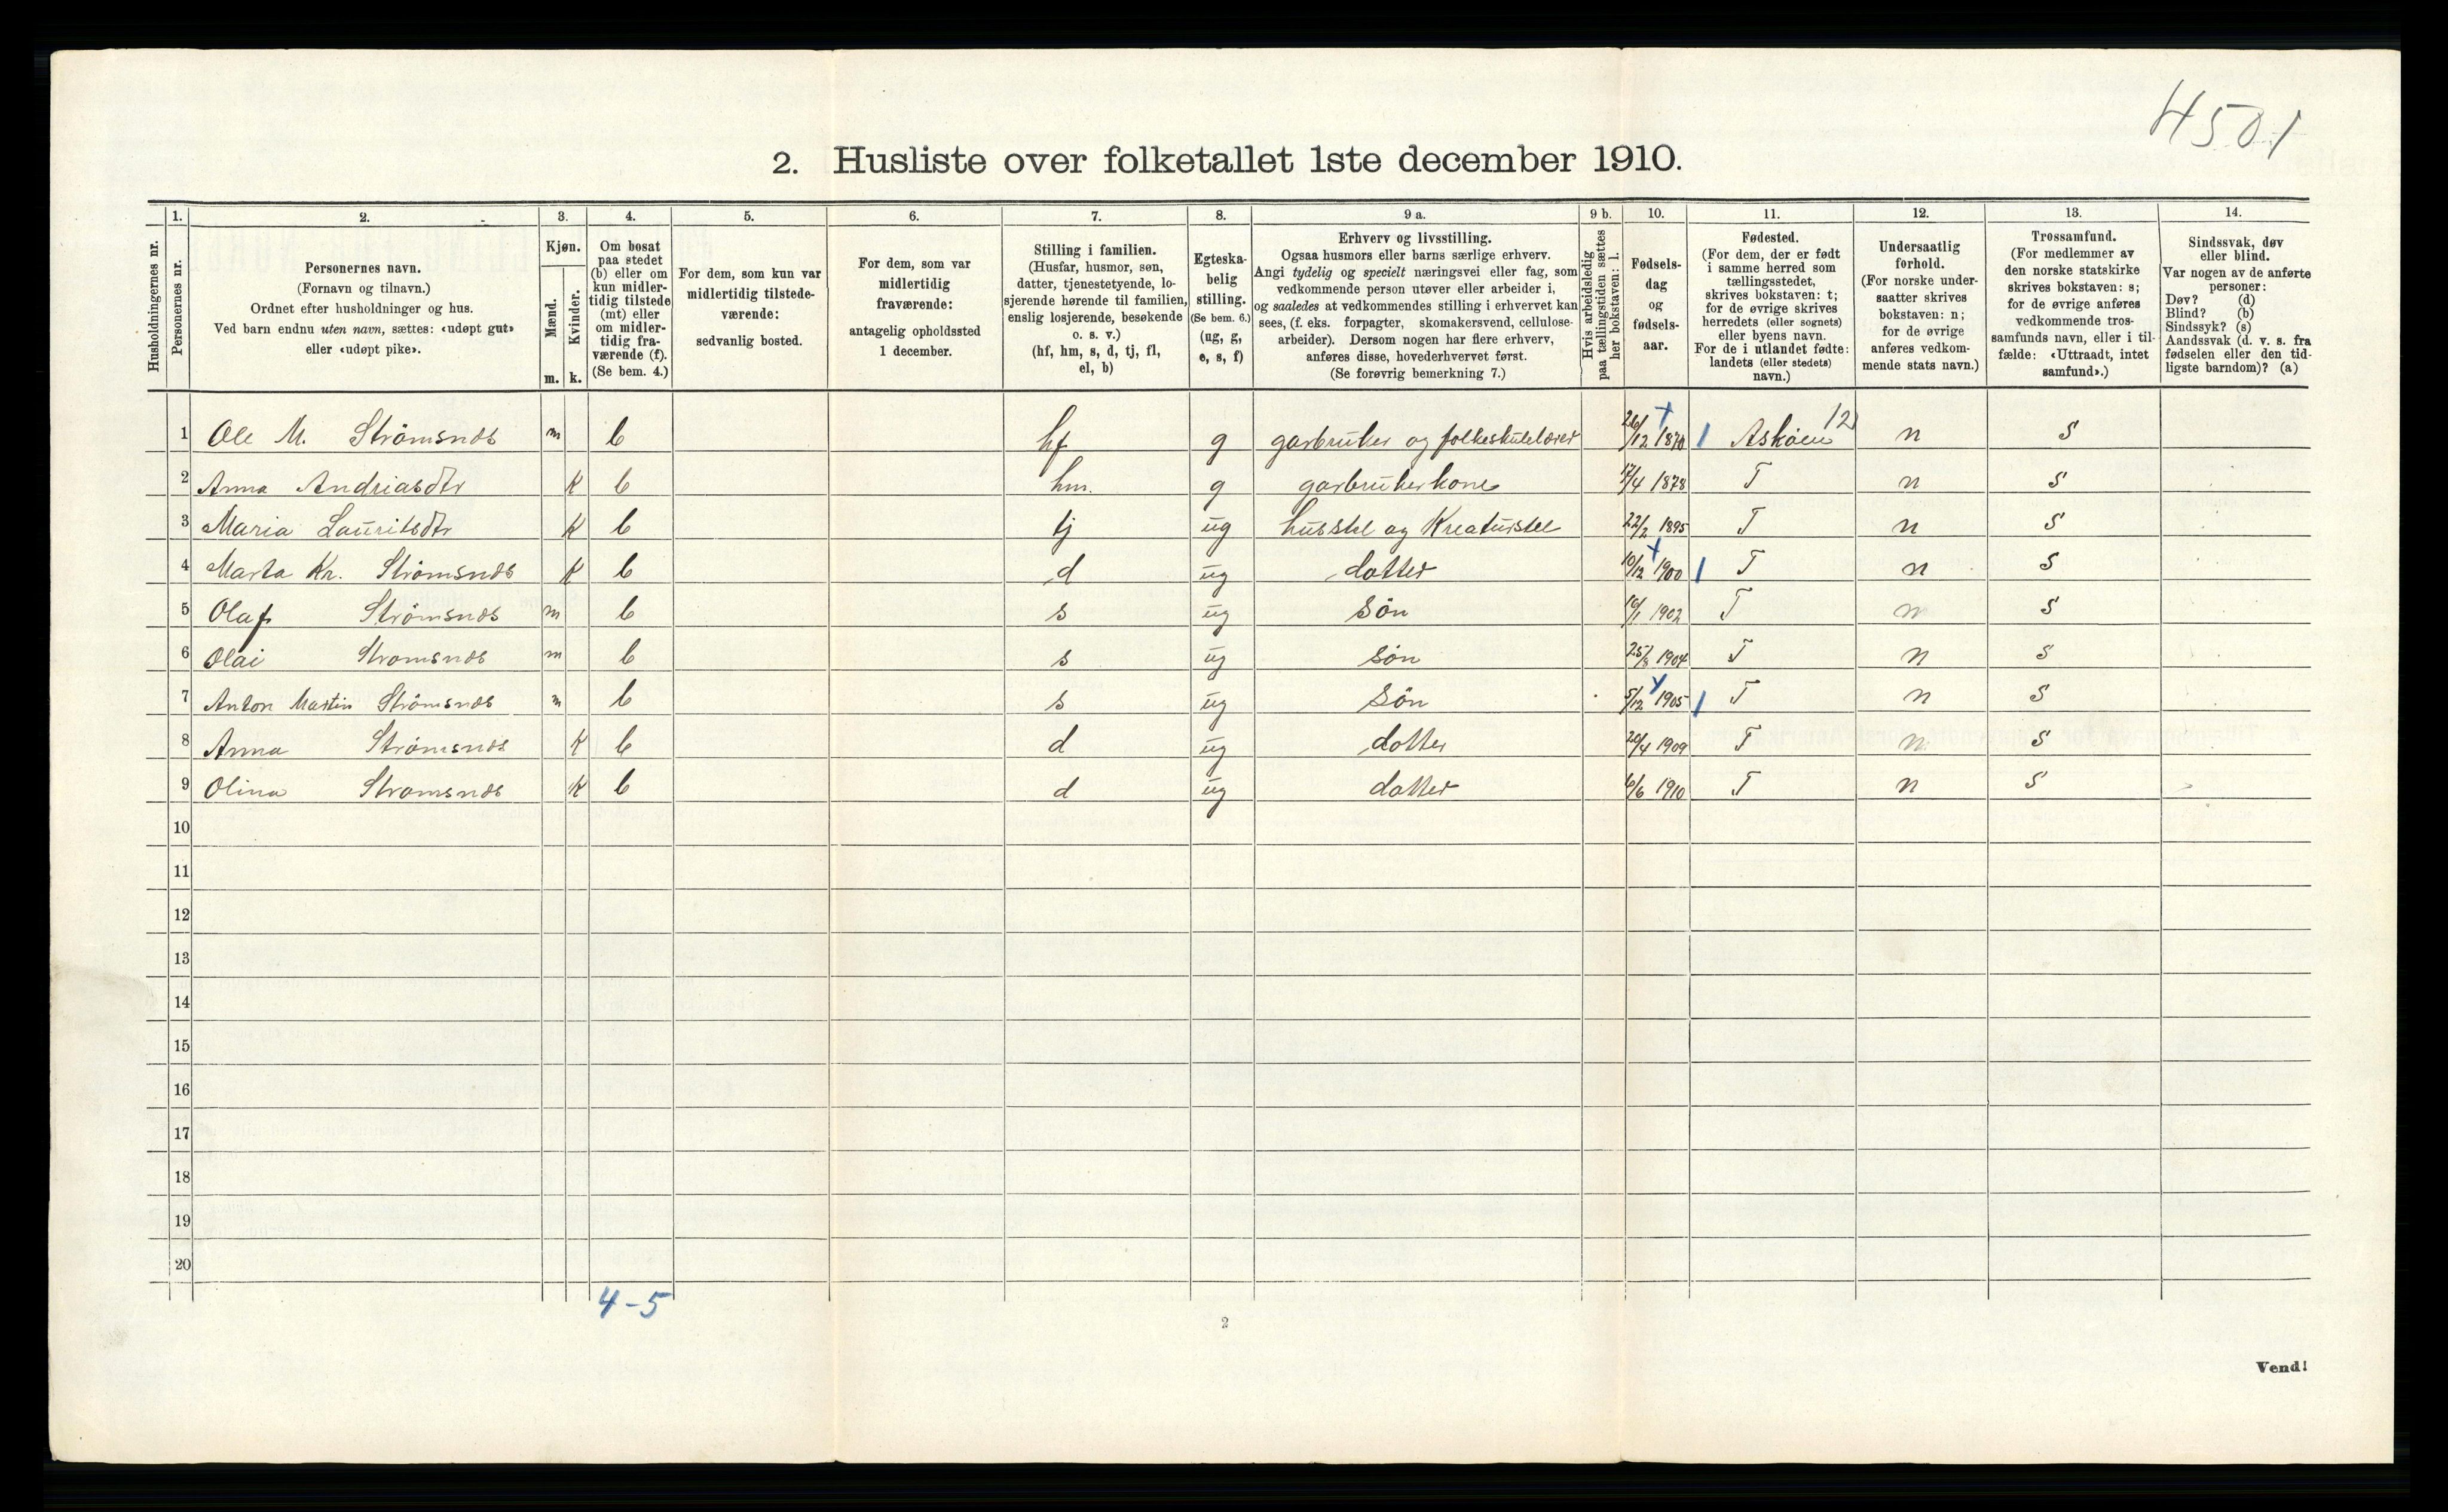 4501
2. Husliste over folketallet 1ste december 1910.
Husholdningernes nr.
1. Personernes nr.
2. Personernes navn. (Fornavn og tilnavn.) Ordnet efter husholdninger og hus. Ved barn endnu uten navn, sættes: «udøpt gut» eller «udøpt pike».
3. Kjøn. Mænd. m. Kvinder. k.
4. Om bosat paa stedet (b) eller om kun midlertidig tilstede (mt) eller om midlertidig fraværende (f). (Se bem. 4.)
5. For dem, som kun var midlertidig tilstedeværende: sedvanlig bosted.
6. For dem, som var midlertidig fraværende: antagelig opholdssted 1 december.
7. Stilling i familien. (Husfar, husmor, søn, datter, tjenestetyende, losjerende hørende til familien, enslig losjerende, besøkende o. s. v.) (hf, hm, s, d, tj, fl, el, b)
8. Egteskabelig stilling. (Se bem. 6.) (ug, g, e, s, f)
9 a. Erhverv og livsstilling. Ogsaa husmors eller barns særlige erhverv. Angi tydelig og specielt næringsvei eller fag, som vedkommende person utøver eller arbeider i, og saaledes at vedkommendes stilling i erhvervet kan sees, (f. eks. forpagter, skomakersvend, cellulosearbeider). Dersom nogen har flere erhverv, anføres disse, hovederhvervet først. (Se forøvrig bemerkning 7.)
9 b. Hvis arbeidsledig paa tællingstiden sættes her bokstaven: l.
10. Fødselsdag og fødselsaar.
11. Fødested. (For dem, der er født i samme herred som tællingsstedet, skrives bokstaven: t; for de øvrige skrives herredets (eller sognets) eller byens navn. For de i utlandet fødte: landets (eller stedets) navn.)
12. Undersaatlig forhold. (For norske undersaatter skrives bokstaven: n; for de øvrige anføres vedkommende stats navn.)
13. Trossamfund. (For medlemmer av den norske statskirke skrives bokstaven: s; for de øvrige anføres vedkommende trossamfunds navn, eller i tilfælde: «Uttraadt, intet samfund».)
14. Sindssvak, døv eller blind. Var nogen av de anførte personer: Døv? (d) Blind? (b) Sindssyk? (s) Aandssvak (d. v. s. fra fødselen eller den tidligste barndom)? (a)
1 Ole M. Strömsnes m b hf g garbruker og folkeskulelærer 26/12 1870 Askøen 12 n S
2 Anna Andriasdtr K b hm. g garbrukerkone 17/4 1878 T n S
3 Maria Lauritsdtr K b tj ug husstel og Kreaturstel 22/2 1895 T n S
4 Marta Kr. Strömsnes K b d ug datter 10/12 1900 T n S
5 Olaf Strömsnes m b s ug Sön 10/1 1902 T n S
6 Olai Stromsnes m b s ug Sön 25/8 1904 T n S
7 Anton Martin Strömsnes m b s ug Sön 5/12 1905 T n S
8 Anna Strömsnes K b d ug datter 20/4 1909 T n S
9 Olina Stromsnes K b d ug datter 6/6 1910 T n S
10
11
12
13
14
15
16
17
18
19
20
4-5
2
Vend!